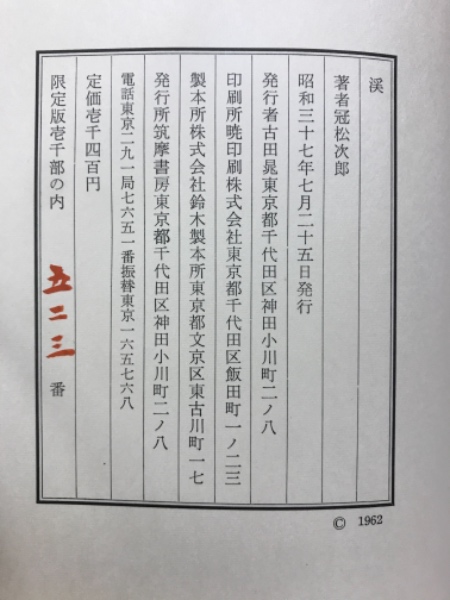 溪
著者冠松次郎
昭和三十七年七月二十五日発行
発行者古田晁東京都千代田区神田小川町二ノ八
印刷所暁印刷株式会社東京都千代田区飯田町一ノ二三
製本所株式会社鈴木製本所東京都文京区東古川町一七
発行所筑摩書房東京都千代田区神田小川町二ノ八
電話東京二九一局七六五一番振替東京一六五七六八
定価壱千四百円
限定版壱千部の内 五二三 番
© 1962